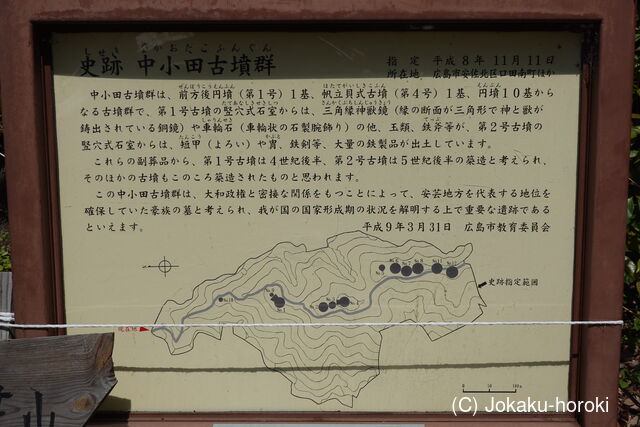 史跡 中小田古墳群
しせき なかおだこふんぐん
指定 平成8年11月11日
所在地 広島市安佐北区口田南町ほか
中小田古墳群は、前方後円墳(第1号)1基、帆立貝式古墳(第4号)1基、円墳10基から
なる古墳群で、第1号古墳の竪穴式石室からは、三角縁神獣鏡(縁の断面が三角形で神と獣が
鋳出されている銅鏡)や車輪石(車輪状の石製腕飾り)の他、玉類、鉄斧等が、第2号古墳の
竪穴式石室からは、短甲(よろい)や冑、鉄剣等、大量の鉄製品が出土しています。
これらの副葬品から、第1号古墳は4世紀後半、第2号古墳は5世紀後半の築造と考えられ、
そのほかの古墳もこのころ築造されたものと思われます。
この中小田古墳群は、大和政権と密接な関係をもつことによって、安芸地方を代表する地位を
確保していた豪族の墓と考えられ、我が国の国家形成期の状況を解明する上で重要な遺跡である
といえます。
平成9年3月31日 広島市教育委員会
史跡指定範囲
現在地
(C) Jokaku-horoki